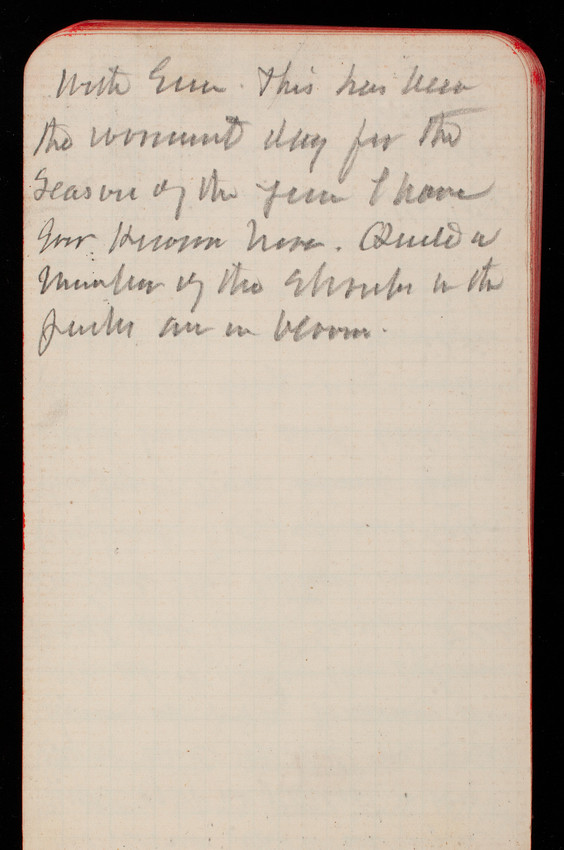 With Emm. This has been
the warmest day for the
Season of the year I have
Ever Known here. Quite a
Number of the Shrubs in the
parks are in bloom.